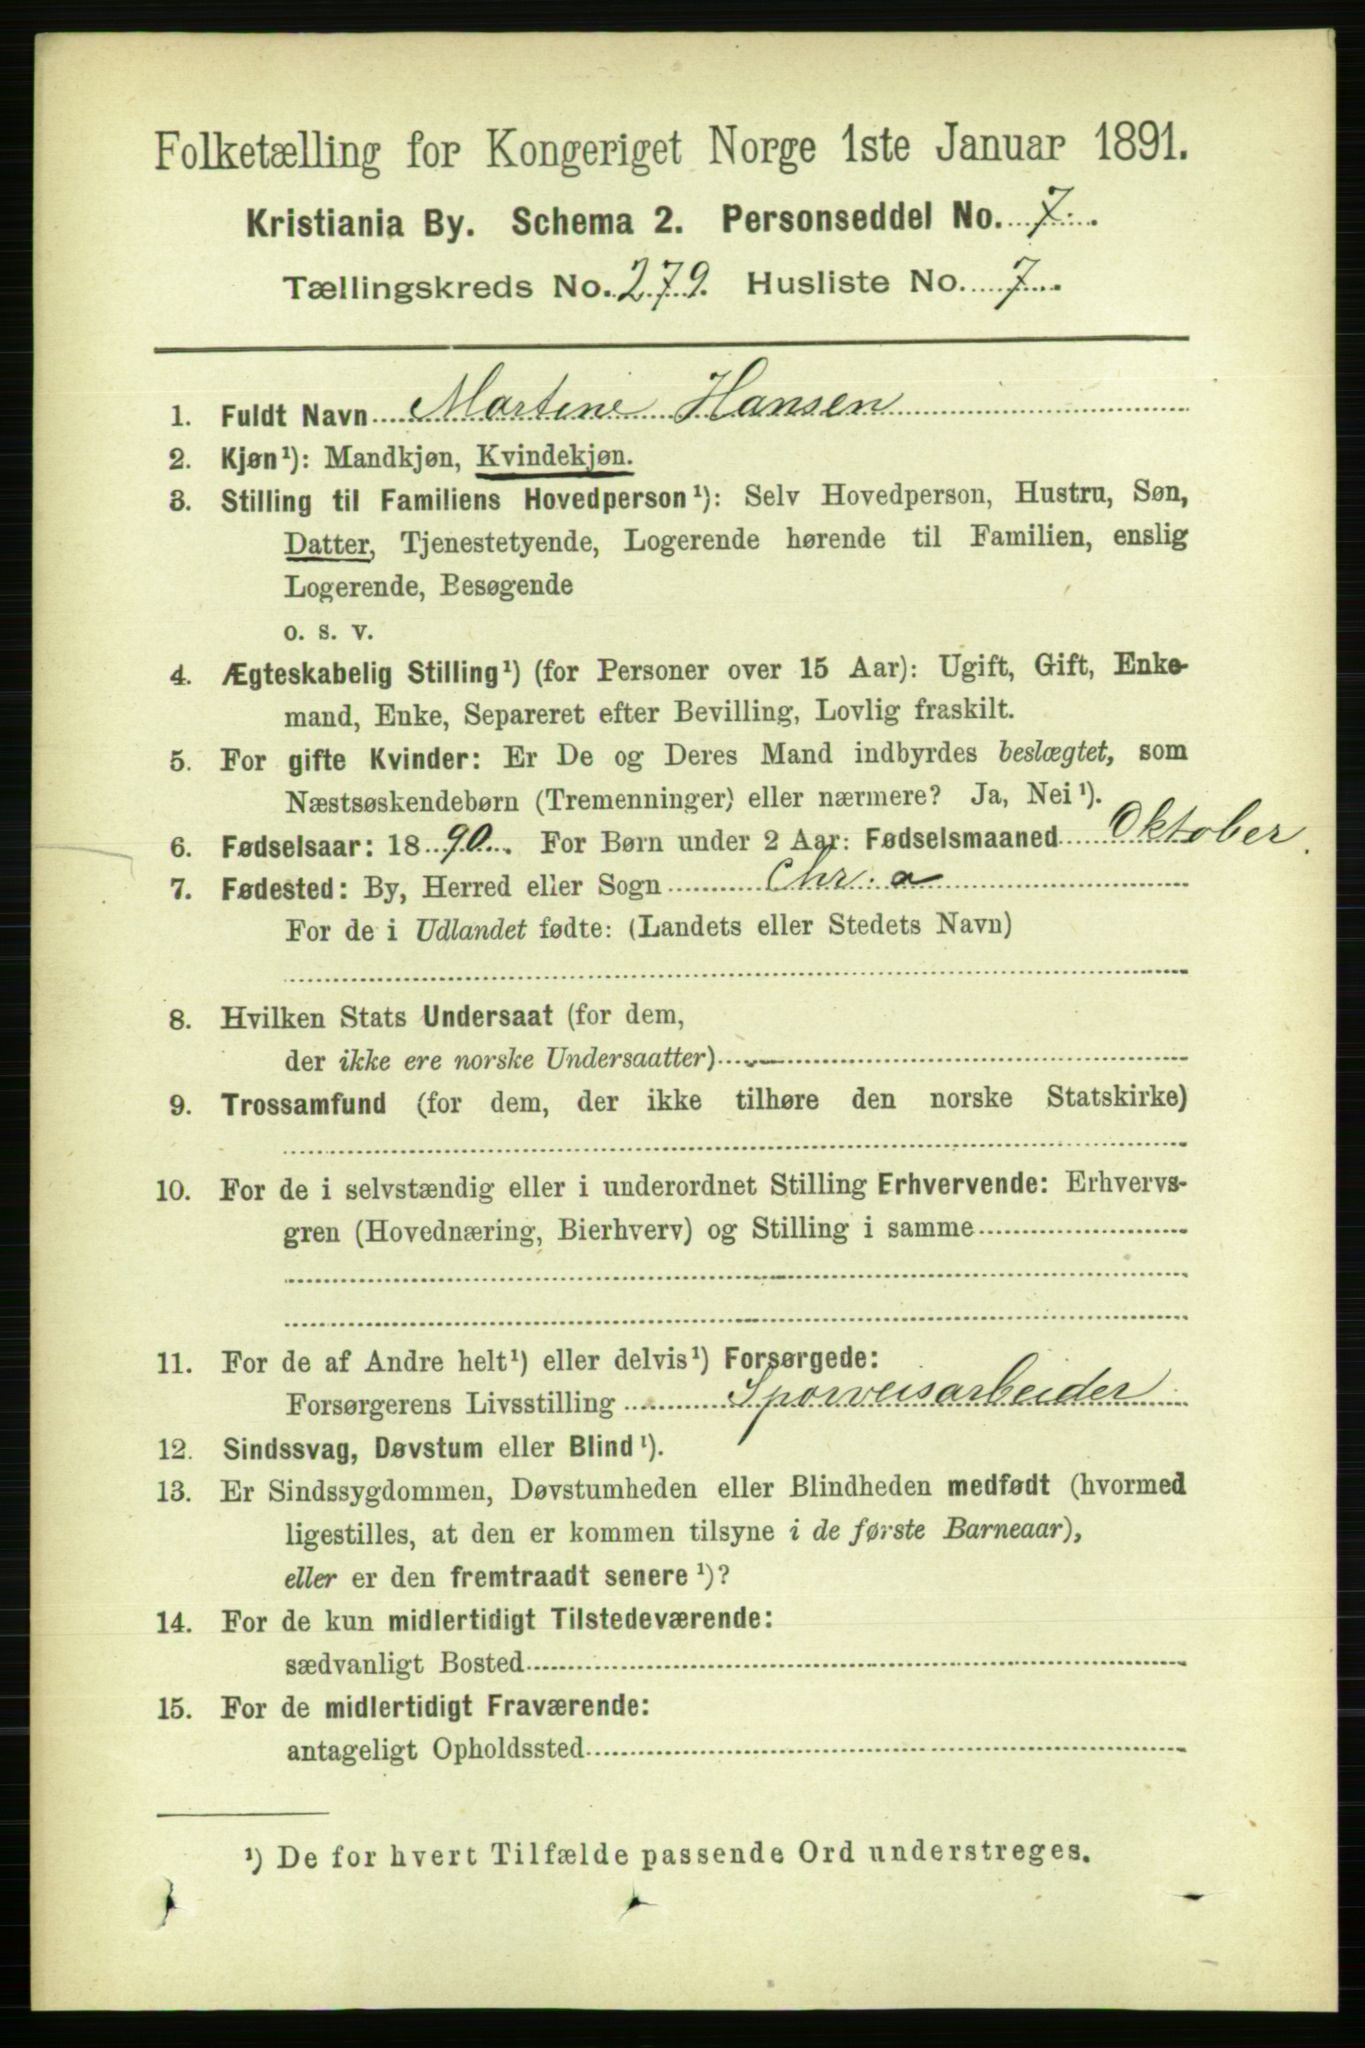 Folketælling for Kongeriget Norge 1ste Januar 1891.
Kristiania By. Schema 2. Personseddel No. 7.
Tællingskreds No. 279. Husliste No. 7.
1. Fuldt Navn Martine Hansen
2. Kjøn¹): Mandkjøn, Kvindekjøn.
3. Stilling til Familiens Hovedperson¹): Selv Hovedperson, Hustru, Søn,
Datter, Tjenestetyende, Logerende hørende til Familien, enslig
Logerende, Besøgende
o. s. v.
4. Ægteskabelig Stilling¹) (for Personer over 15 Aar): Ugift, Gift, Enke-
mand, Enke, Separeret efter Bevilling, Lovlig fraskilt.
5. For gifte Kvinder: Er De og Deres Mand indbyrdes beslægtet, som
Næstsøskendebørn (Tremenninger) eller nærmere? Ja, Nei¹).
6. Fødselsaar: 1890. For Børn under 2 Aar: Fødselsmaaned Oktober.
7. Fødested: By, Herred eller Sogn Chr.a
For de i Udlandet fødte: (Landets eller Stedets Navn)
8. Hvilken Stats Undersaat (for dem,
der ikke ere norske Undersaatter) -
9. Trossamfund (for dem, der ikke tilhøre den norske Statskirke)
10. For de i selvstændig eller i underordnet Stilling Erhvervende: Erhvervs-
gren (Hovednæring, Bierhverv) og Stilling i samme
11. For de af Andre helt¹) eller delvis¹) Forsørgede:
Forsørgerens Livsstilling Sporveisarbeider
12. Sindssvag, Døvstum eller Blind¹).
13. Er Sindssygdommen, Døvstumheden eller Blindheden medfødt (hvormed
ligestilles, at den er kommen tilsyne i de første Barneaar),
eller er den fremtraadt senere¹)?
14. For de kun midlertidigt Tilstedeværende:
sædvanligt Bosted
15. For de midlertidigt Fraværende:
antageligt Opholdssted
¹) De for hvert Tilfælde passende Ord understreges.